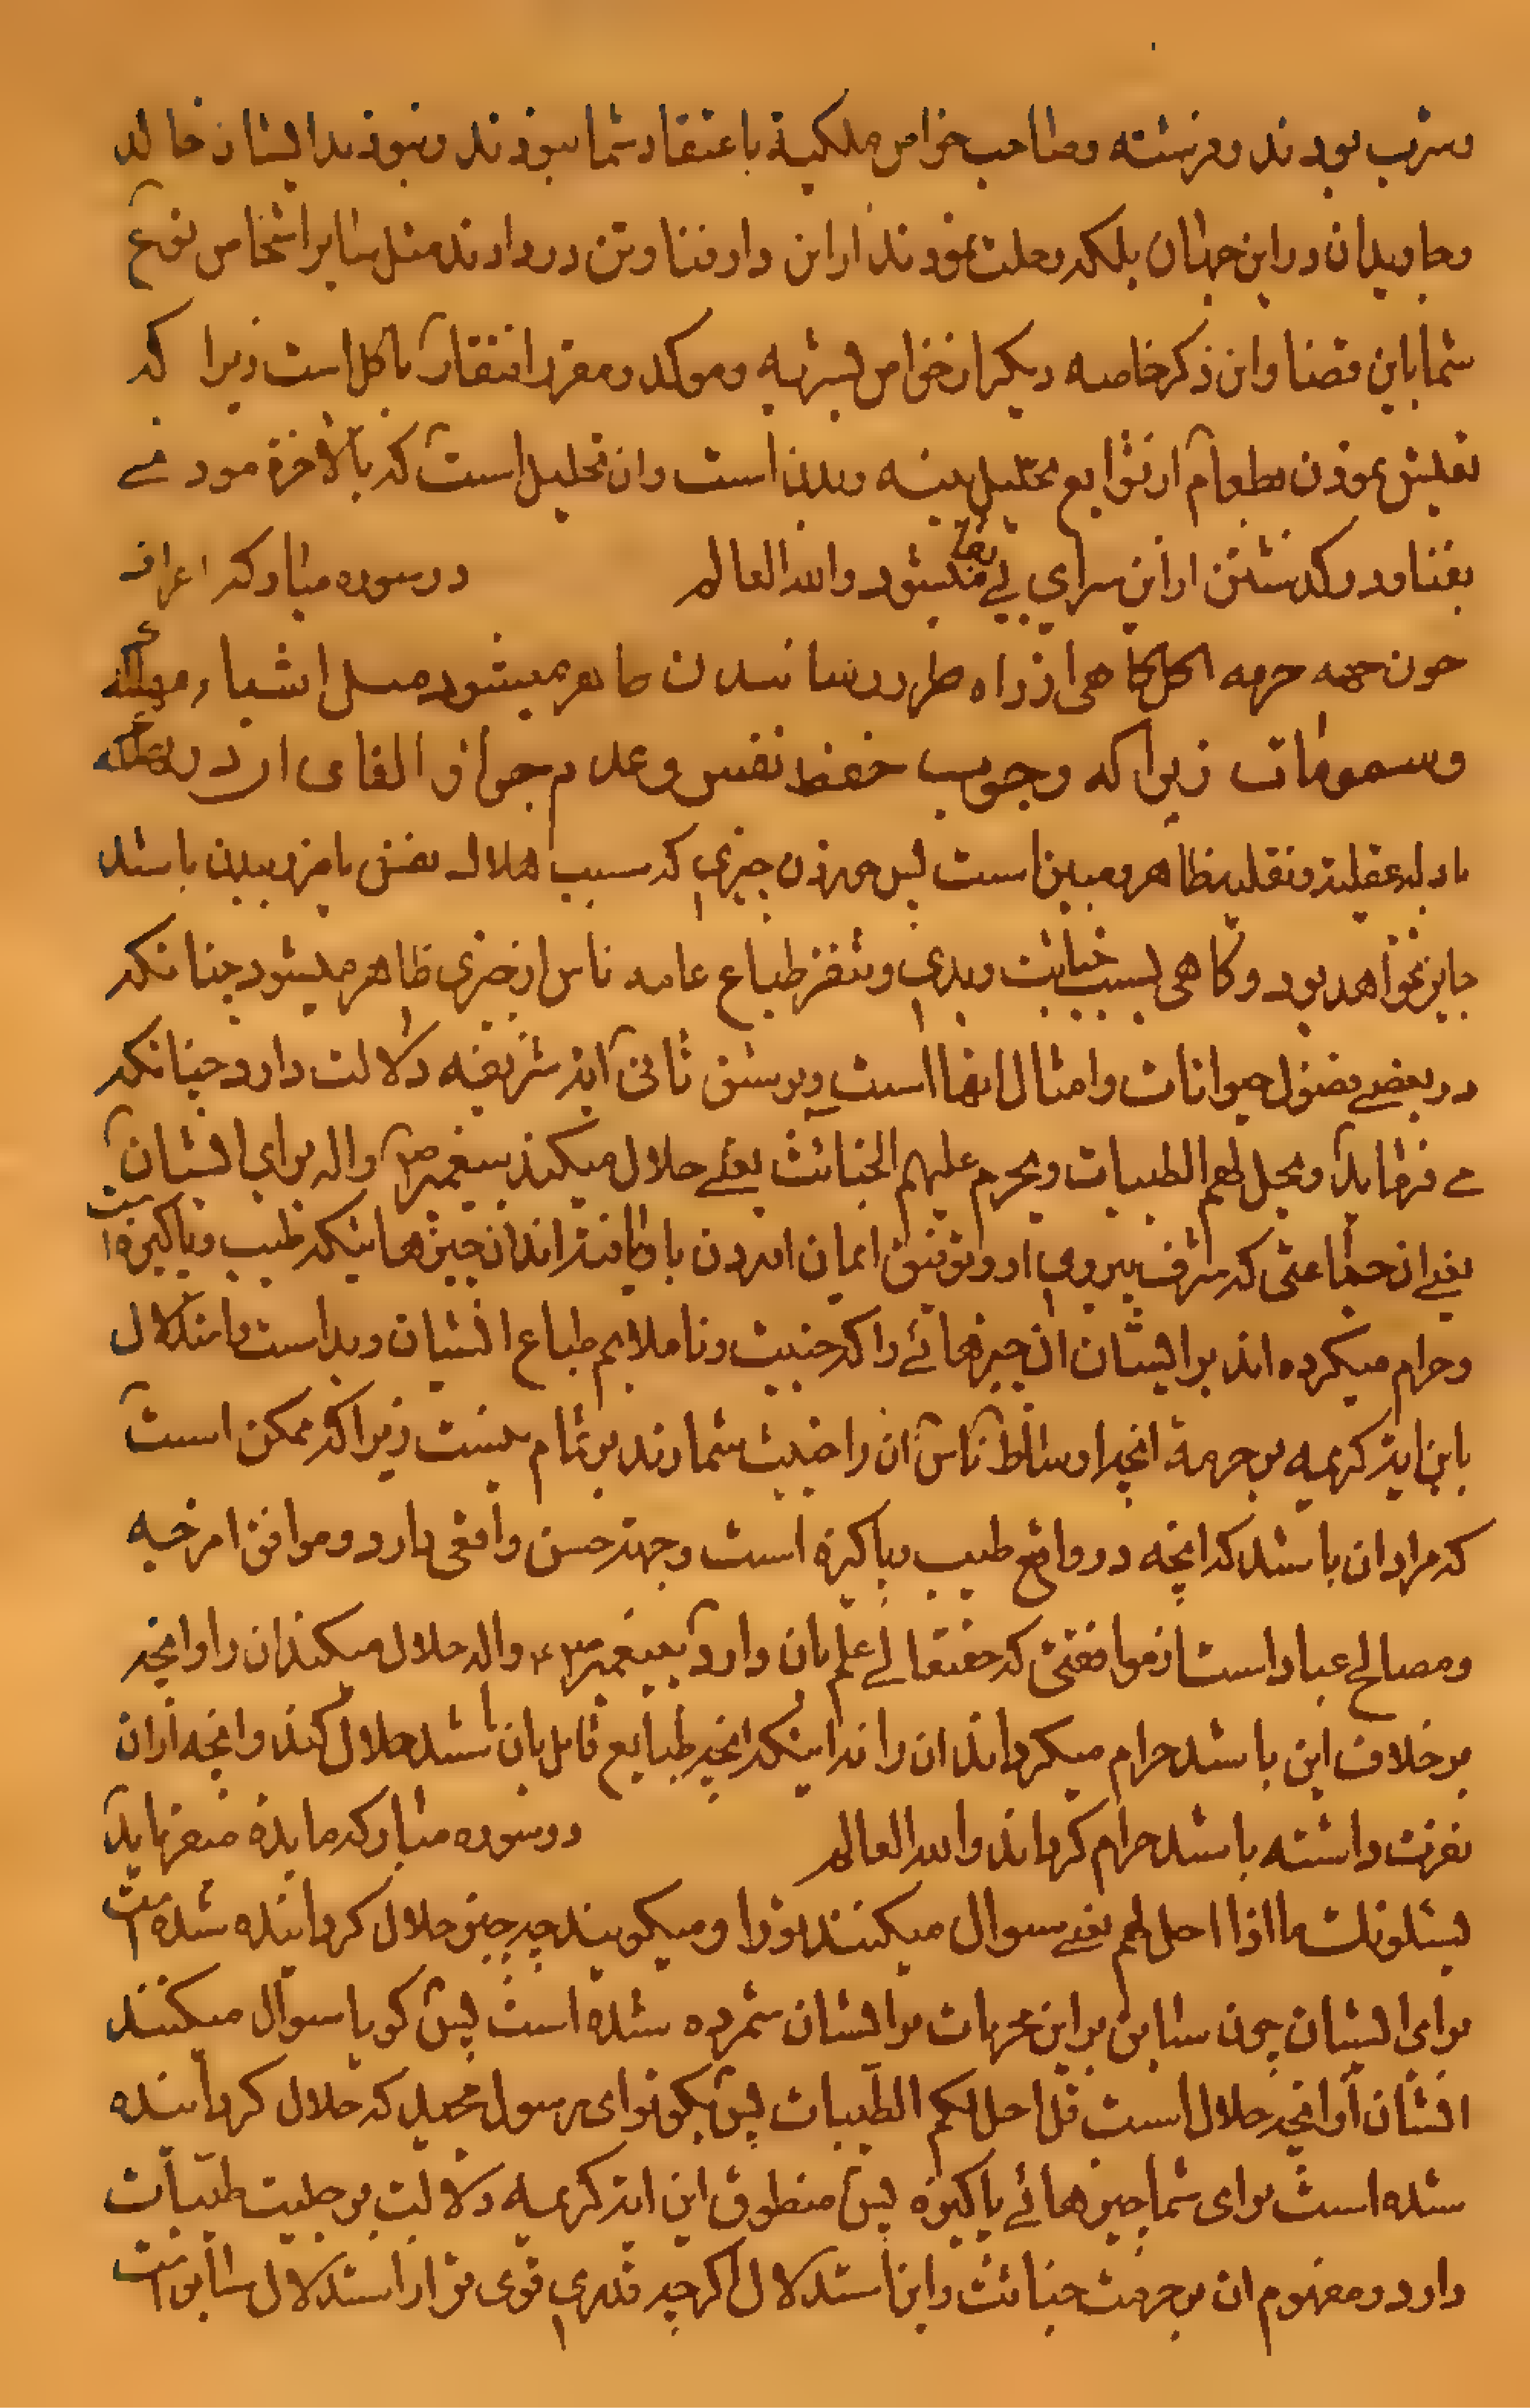 وشرب بودند و فرشته وصاحب خواص ملکیة باعتقاد شما نبودند و نبودند ایشان خالد
وجاویدان در این جهان بلکه رحلت نمودند از این دار فنا و تن در دادند مثل سایر اشخاص نوع
شما باین قضا و این ذکر خاصه دیگر از خواص بشریه و موکد و مقرر افتقار باکل است زیرا که
تعیش نمودن بطعام از توابع تحلیل بنیه وبدن است وان تحلیل است که بالاخره مودی
بفنا و درگذشتن از این سرای بی بقا میشود والله العالم در سوره مبارکه اعراف
چون جهه حرمه اکل گاهی از راه ضرر رسانیدن ظاهر میشود مثل اشیاء مهلکه
وسمومات زیرا که وجوب حفظ نفس و عدم جواز القای ان در مهلکه
بادله عقلیة ونقلیه ظاهر ومبین است پس خوردن چیزی که سبب هلاک نفس یا ضرر بدن باشد
جایز نخواهد بود و کاهی بسبب خباثت وبدی وتنفر طباع عامه ناس از چیزی ظاهر میشود چنانکه
در بعضی فضول حیوانات وامثال انها است وبر شق ثانی آیه شریفه دلالت دارد چنانکه
می فرماید ویحل لهم الطیبات ویحرم علیهم الخبائث یعنی حلال میکند پیغمبر ص واله برای ایشان
یعنی ان جماعتی که شرف پیروی او و توفیق ایمان اوردن باو یافته اند ان چیزهاییکه طیب وپاکیزه است
وحرام میکرده اند بر ایشان ان چیزهائی را که خبیث و ناملایم طباع ایشان وبد است واستدلال
باین ایه کریمه بر حرمة انچه اوساط ناس ان را خبیث شمارند بر تمام نیست زیرا که ممکن است
که مراد ان باشد که انچه در واقع طیب وپاکیزه است وجهة حسن واقعی دارد وموافق امزجه
ومصالح عباد است از موافقتی که حقتعالی علم بان دارد پیغمبر ص ع واله حلال میکند ان را وانچه
بر خلاف این باشد حرام میکرداند ان را نه اینکه انچه طبایع قابل بان باشد حلال کند وانچه از ان
نفرت داشته باشد حرام کرداند والله العالم در سوره مبارکه مایده میفرماید
یسئلونک ما اذا احل لهم یعنی سوال میکنند تو را و میکویند چه چیز حلال کردانیده شده است
برای ایشان چون سابق بر این محرمات بر ایشان شمرده شده است پس کویا سوال میکنند
ایشان از انچه حلال است قل احل لکم الطیبات پس بکو تو ای رسول مجید که حلال کردانیده
شده است برای شما چیزهائی پاکیزه پس منطوق این ایه کریمه دلالت بر حلیت طیبات
دارد ومفهوم ان بر حرمت خبائث واین استدلال اکرچه قدری قوی تر از استدلال سابق است